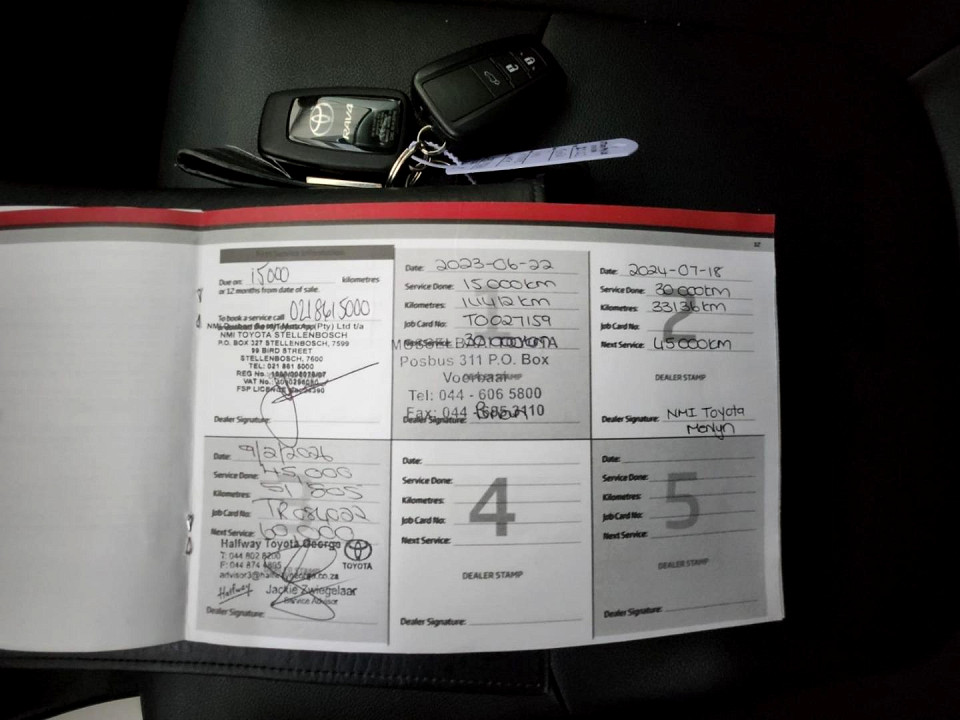 RAV4
12
First Service Information
Due on: 15000 kilometres
or 12 months from date of sale.
To book a service call 0218615000
(Pty) Ltd t/a
NMI TOYOTA STELLENBOSCH
P.O. BOX 327 STELLENBOSCH, 7599
99 BIRD STREET
STELLENBOSCH, 7600
TEL: 021 861 5000
REG No.
VAT No.:
FSP LICENCE No.
Dealer Signature:
Date: 2023-06-22
Service Done: 15 000km
Kilometres: 14412 km
Job Card No: TO027159
30 000km
Posbus 311 P.O. Box
Voorbaai
Tel: 044 - 606 5800
Fax: 044 - 695 3110
Dealer Signature:
2
Date: 2024-07-18
Service Done: 30 000km
Kilometres: 33136km
Job Card No:
Next Service: 45000km
DEALER STAMP
Dealer Signature: NMI Toyota
Merlyn
Date: 9/2/2026
Service Done: 45,000
Kilometres: 51 805
Job Card No: TR084022
Next Service: 60,000
Halfway Toyota George
T: 044 802 8200
F: 044 874 4695
TOYOTA
Halfway Jackie Zwiegelaar
Service Advisor
Dealer Signature:
4
Date:
Service Done:
Kilometres:
Job Card No:
Next Service:
DEALER STAMP
Dealer Signature:
5
Date:
Service Done:
Kilometres:
Job Card No:
Next Service:
DEALER STAMP
Dealer Signature: